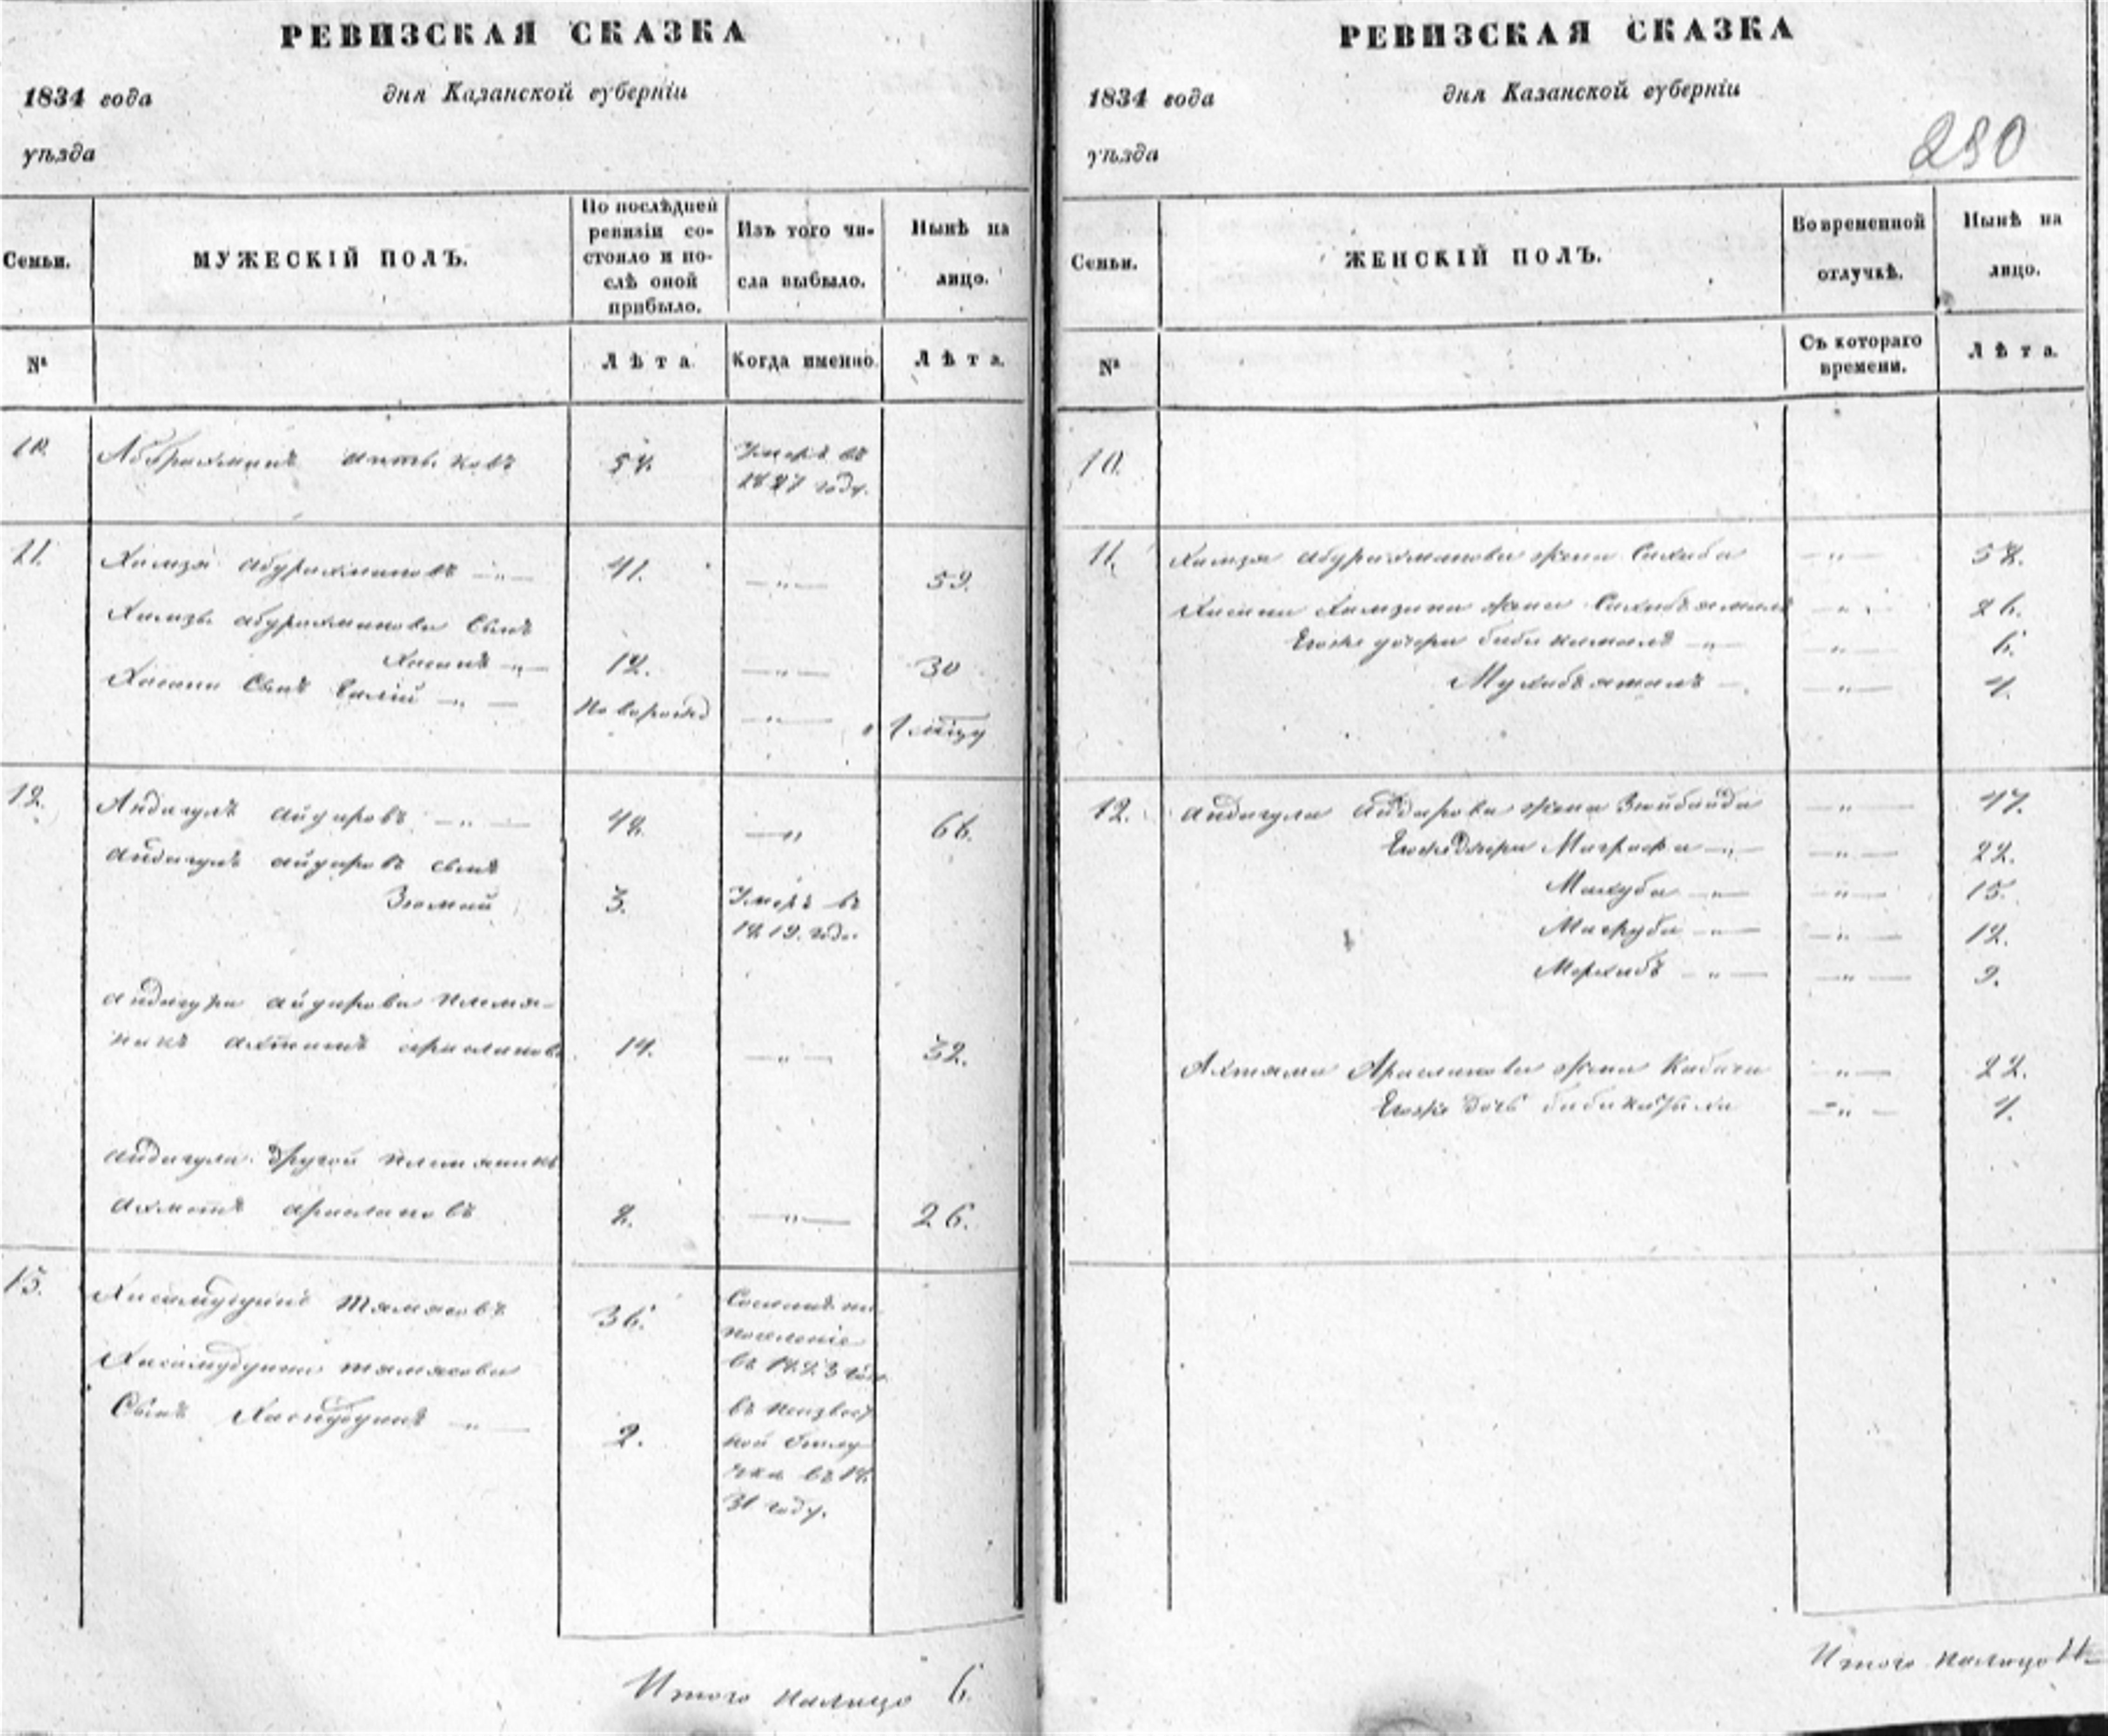 РЕВИЗСКАЯ СКАЗКА
1834 года дня Казанской губерніи
уѣзда
Семьи.
МУЖЕСКІЙ ПОЛЪ.
По послѣдней
ревизіи со-
стояло и по-
слѣ оной
прибыло.
Изъ того чи-
сла выбыло.
Нынѣ на
лицо.
№
Лѣта
Когда именно.
Лѣта.
10.
54.
Умеръ въ
1827 году.
11.
Хамзя Абдрахмановъ —„—
41.
—„—
59.
Хамзы абдрахманова Сынъ
Хасанъ —„—
12.
—„—
30
Хасана Сынъ Валий —„—
Новорожд
—„—
1 мѣсяцу
12.
Айдагулъ Айдаровъ —„—
48.
—„
66.
Айдагулъ Айдаровъ сынъ
3.
Умеръ въ
1819. году
Айдагула Айдарова племя-
никъ Ахтямъ Арслановъ
14.
—„—
32.
Айдагула другой племяникъ
Ахметъ Арслановъ
8.
—„—
26.
13.
Хисамудинъ Тямясовъ
36.
Сосланъ на
поселеніе
въ 1823 году
Хисамудина тямясова
Сынъ —„—
2.
въ неизвѣст
ной отлу
чкѣ въ 18
31 году.
Итого налицо 6.
РЕВИЗСКАЯ СКАЗКА
1834 года дня Казанской губерніи
уѣзда
280
Семьи.
ЖЕНСКІЙ ПОЛЪ.
Во временной
отлучкѣ.
Нынѣ на
лицо.
№
Съ котораго
времени.
Лѣта.
10.
11.
Хамзя Абдрахманова жена Сахиба
—„—
58.
Хасана Хамзина жена Сахибъямалъ
—„—
26.
Егоже дочери Бибикамалъ —„—
—„—
6.
Мухибъямалъ —
—„—
4.
12.
Айдагула Айдарова жена
—„—
47.
Егоже дочери —„—
—„—
22.
Махуба —„—
—„—
15.
Магруба —„—
—„—
12.
—„—
—„—
9.
Ахтяма Арсланова жена
—„—
22.
Егоже дочь
—„—
4.
Итого налицо 11